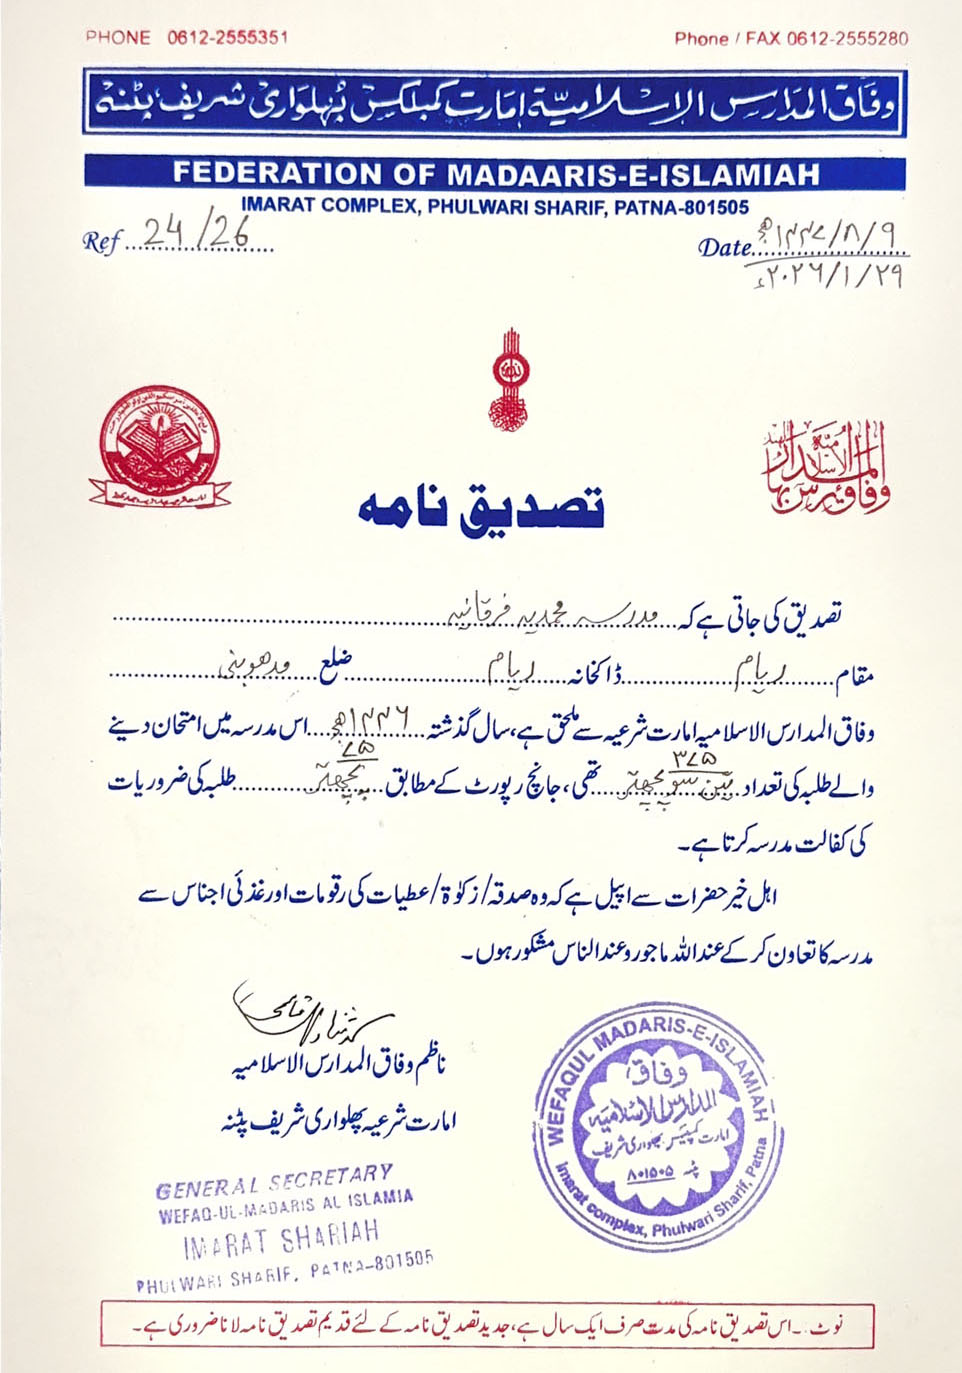 PHONE 0612-2555351
Phone / FAX 0612-2555280
وفاق المدارس الاسلامیۃ امارت کمپلکس پھلواری شریف، پٹنہ
FEDERATION OF MADAARIS-E-ISLAMIAH
IMARAT COMPLEX, PHULWARI SHARIF, PATNA-801505
Ref ... 24/26
Date... ۱۴۴۷/۸/۹ھ
۲۰۲۶/۱/۲۹ء
وفاق المدارس الاسلامیہ
تصدیق نامہ
تصدیق کی جاتی ہے کہ ... مدرسہ محمدیہ فرقانیہ
مقام ... ریام ... ڈاکخانہ ... ریام ... ضلع ... مدھوبنی
وفاق المدارس الاسلامیہ امارت شرعیہ سے ملحق ہے، سال گذشتہ ... ۱۴۴۶ھ ... اس مدرسہ میں امتحان دینے
والے طلبہ کی تعداد ... ۳۷۵ تین سو پچھتر ... تھی، جانچ رپورٹ کے مطابق ... ۷۵ پچھتر ... طلبہ کی ضروریات
کی کفالت مدرسہ کرتا ہے۔
اہل خیر حضرات سے اپیل ہے کہ وہ صدقہ/زکوٰۃ/عطیات کی رقومات اور غذئی اجناس سے
مدرسہ کا تعاون کر کے عند اللہ ماجور و عند الناس مشکور ہوں۔
ناظم وفاق المدارس الاسلامیہ
امارت شرعیہ پھلواری شریف پٹنہ
GENERAL SECRETARY
WEFAQ-UL-MADARIS AL ISLAMIA
IMARAT SHARIAH
PHULWARI SHARIF, PATNA-801505
WEFAQUL MADARIS-E-ISLAMIAH
وفاق
المدارس الاسلامیہ
امارت کمپلیکس پھلواری شریف
پٹنہ ۸۰۱۵۰۵
Imarat complex, Phulwari Sharif, Patna
نوٹ۔ اس تصدیق نامہ کی مدت صرف ایک سال ہے، جدید تصدیق نامہ کے لئے قدیم تصدیق نامہ لانا ضروری ہے۔